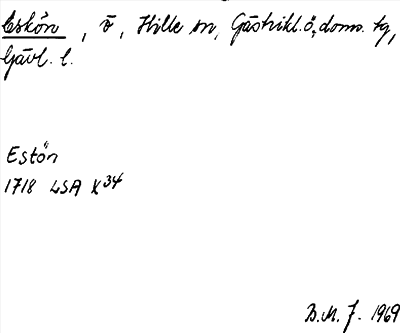 Eskön, ö, Hille sn, Gästrikl. ö, doms. tg,
Gävl. l.
Estön
1718 LSA X34
B. M. J. 1969